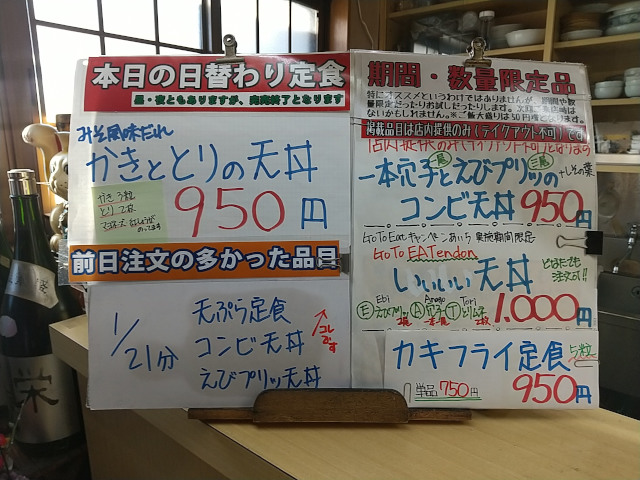 本日の日替わり定食
昼・夜ともありますが、完売終了となります
みそ風味だれ
かきととりの天丼
かき 3粒
とり 2枚
950円
前日注文の多かった品目
1/21分
天ぷら定食
コンビ天丼
えびプリッ天丼
コレです
期間・数量限定品
特にオススメというわけではありませんが、期間や数
量限定だったりお試しだったりします。次回ご来店時は
ないかもしれません。※ご飯大盛りは50円増となります。
掲載品目は店内提供のみ（テイクアウト不可）です
一本穴子とえびプリッの
+しその葉
コンビ天丼 950円
Go To Eatキャンペーンあいち 実施期間限定
Go To EATendon
いいいい天丼
とはたでも
注文OK!!
Ebi Anago Tori
Ⓔえびプリッ 2尾 Ⓐ穴子 一本 Ⓣとりムネ 2枚
1.000円
カキフライ定食 5粒
単品 750円
950円
栄